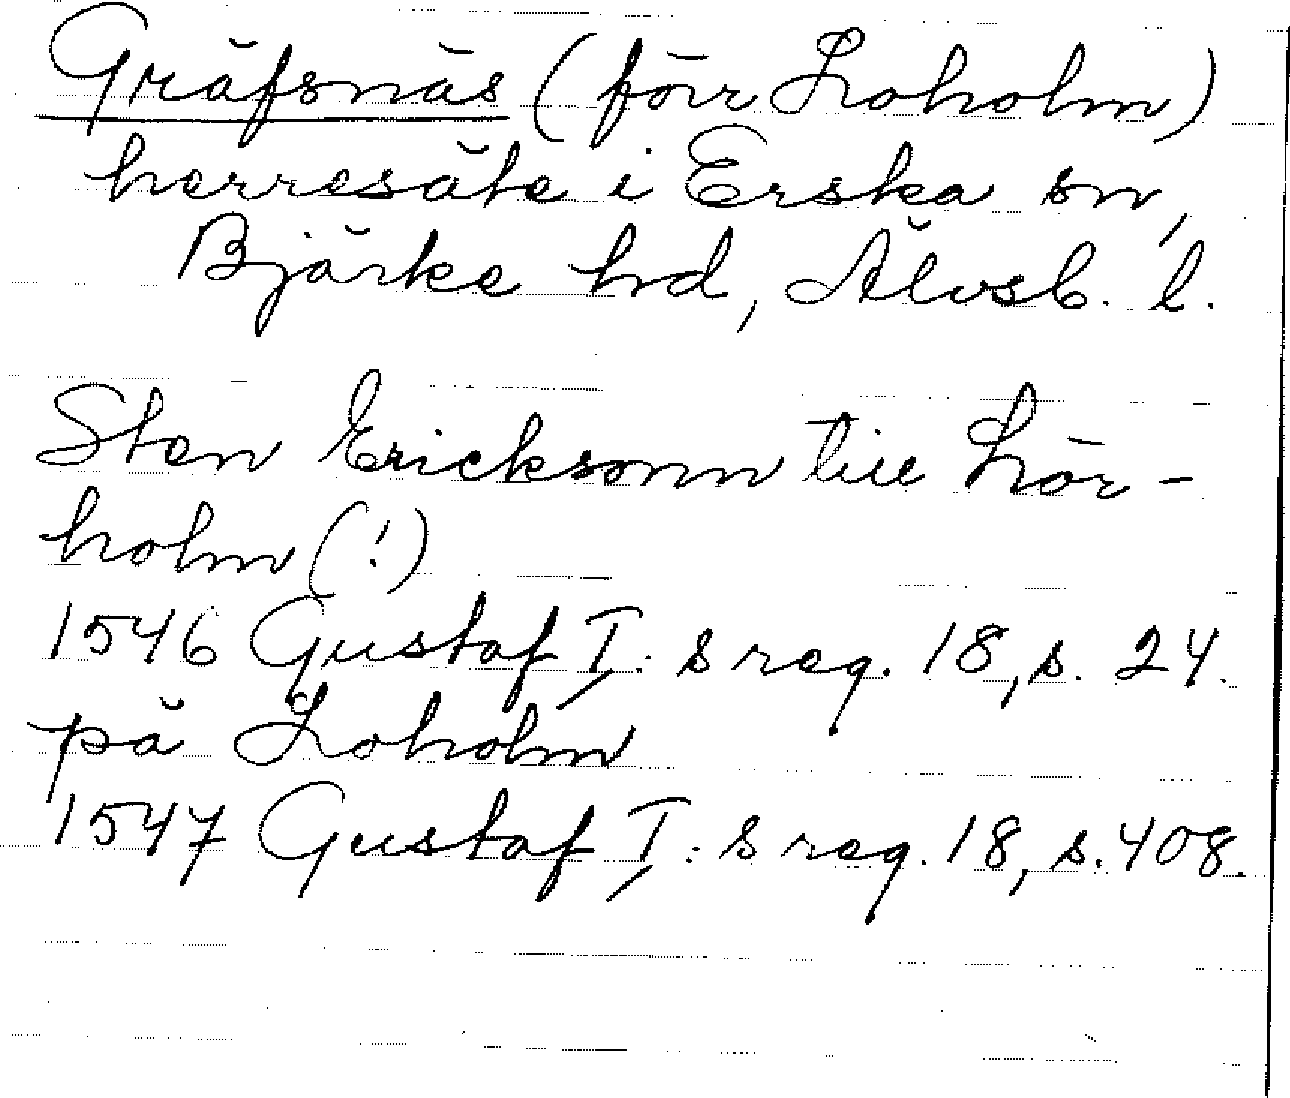 Gräfsnäs (förr Loholm)
herresäte i Erska sn,
Bjärke hd, Älvsb. l.
Sten Ericksonn till Lör-
holm (!)
1546 Gustaf I: s reg. 18, s. 24.
på Loholm
1547 Gustaf I: s reg. 18, s. 408.